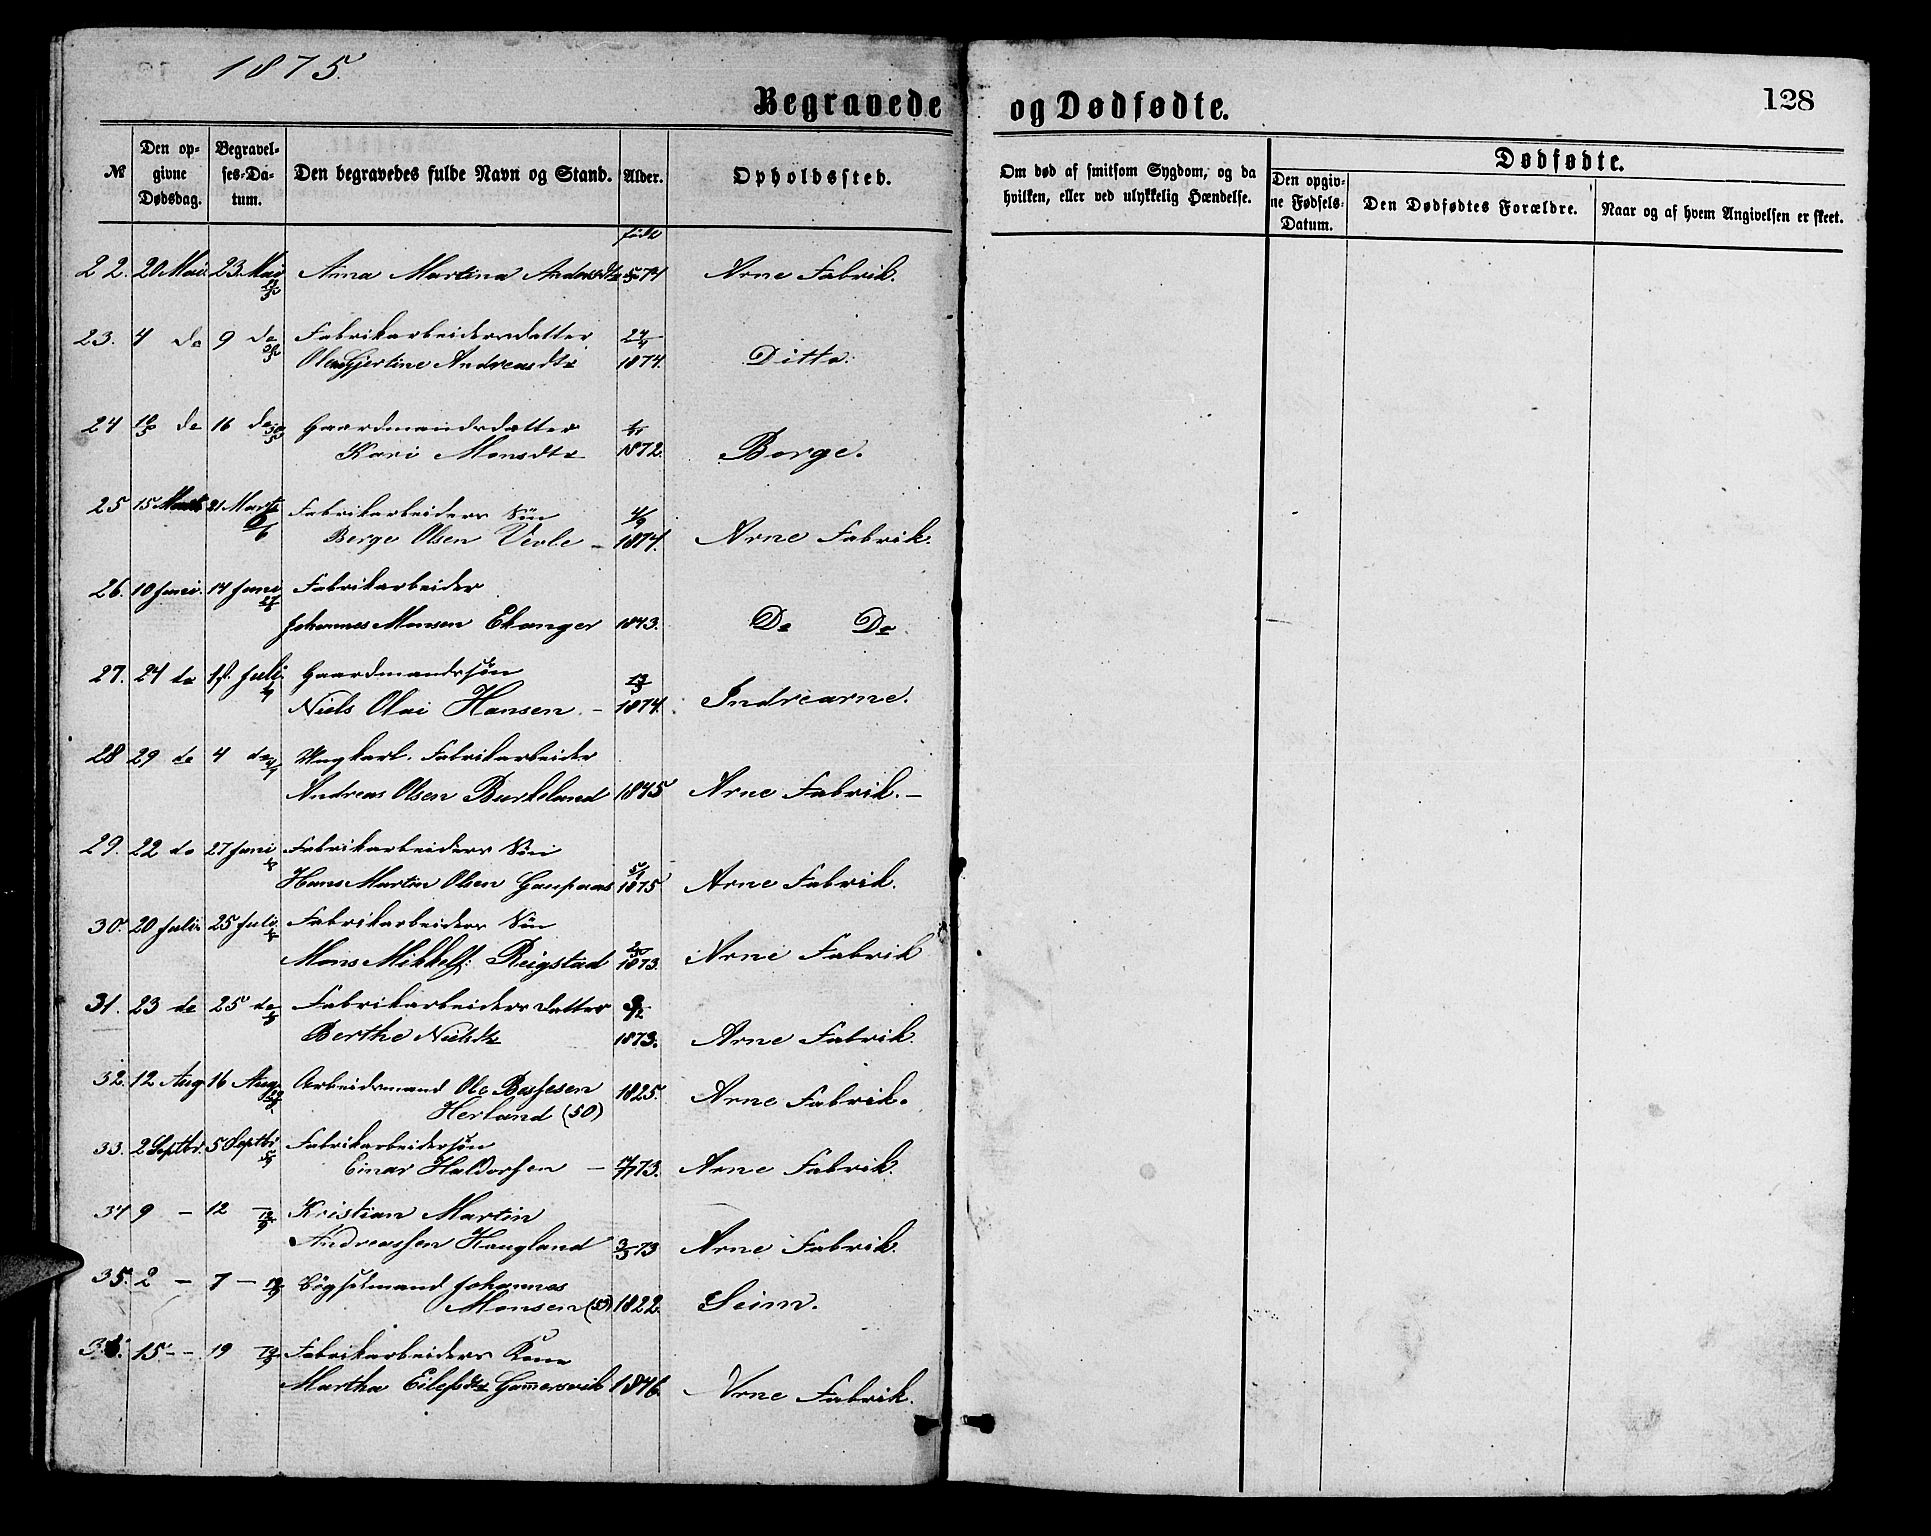 1875.
Begravede og Dødfødte.
128
№
Den op-
givne
Dødsdag.
Begravel-
ses-Da-
tum.
Den begravedes fulde Navn og Stand.
Alder.
Opholdssted.
Om død af smitsom Sygdom, og da
hvilken, eller ved ulykkelig Hændelse.
Dødfødte.
Den opgiv-
ne Fødsels-
Datum.
Den Dødfødtes Forældre.
Naar og af hvem Angivelsen er skeet.
født
22. 20 Mai 23 Mai Anna Martina Andersdtr 74 Arne Fabrik.
23. 4 do 9 do Fabrikarbeidersdatter
Gjertine Andreasdtr 1874. Ditto.
24 do 16 do Gaardmandsdatter
Kari Monsdtr 1872. Borge.
25 15 Marts 21 Marts Fabrikarbeiders Søn
Berge Olsen Vevle – 1874. Arne Fabrik.
26. 10 Juni. 14 Juni Fabrikarbeider
Johannes Monsen Ekanger 1843. Do Do.
27. 24 do 1ste Juli Gaardmandssøn
Niels Olai Hansen – 1874. Indrearne.
28 29 do 4 do Ungkarl. Fabrikarbeider
Andreas Olsen Burkeland 1845 Arne Fabrik. –
29. 22 do 27 Juni Fabrikarbeiders Søn
Hans Martin Olsen Gaupaas 1875 Arne Fabrik.
30. 20 Juli 25 Juli Fabrikarbeiders Søn
Mons Mikkels: Reigstad 1873. Arne Fabrik
31. 23 do 25 do Fabrikarbeiders datter
Berthe Nielsdtr 1873. Arne Fabrik.
32. 12 Aug 16 Aug Arbeidsmand Ole Bessesen 1825. Arne Fabrik.
Herland (50)
33. 2 Septbr. 5 Septbr Fabrikarbeidersøn
Einar Haldorsen – 73. Arne Fabrik.
34 9 – 12 – 12/9 Kristian Martin
Andreassen Haugland 3/3 73 Arne Fabrik.
35. 2 – 7 – Løgselmand Johannes
Monsen (53) 1822. Seim.
36. 15 – – 19 – Fabrikarbeiders Kone
Martha Eilefsdtr Gammersvik 1846. Arne Fabrik.